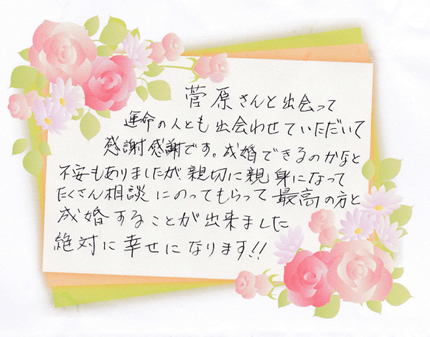 菅原さんと出会って
運命の人とも出会わせていただいて
感謝感謝です。成婚できるのかなと
不安もありましたが親切に親身になって
たくさん相談にのってもらって最高の方と
成婚することが出来ました
絶対に幸せになります!!